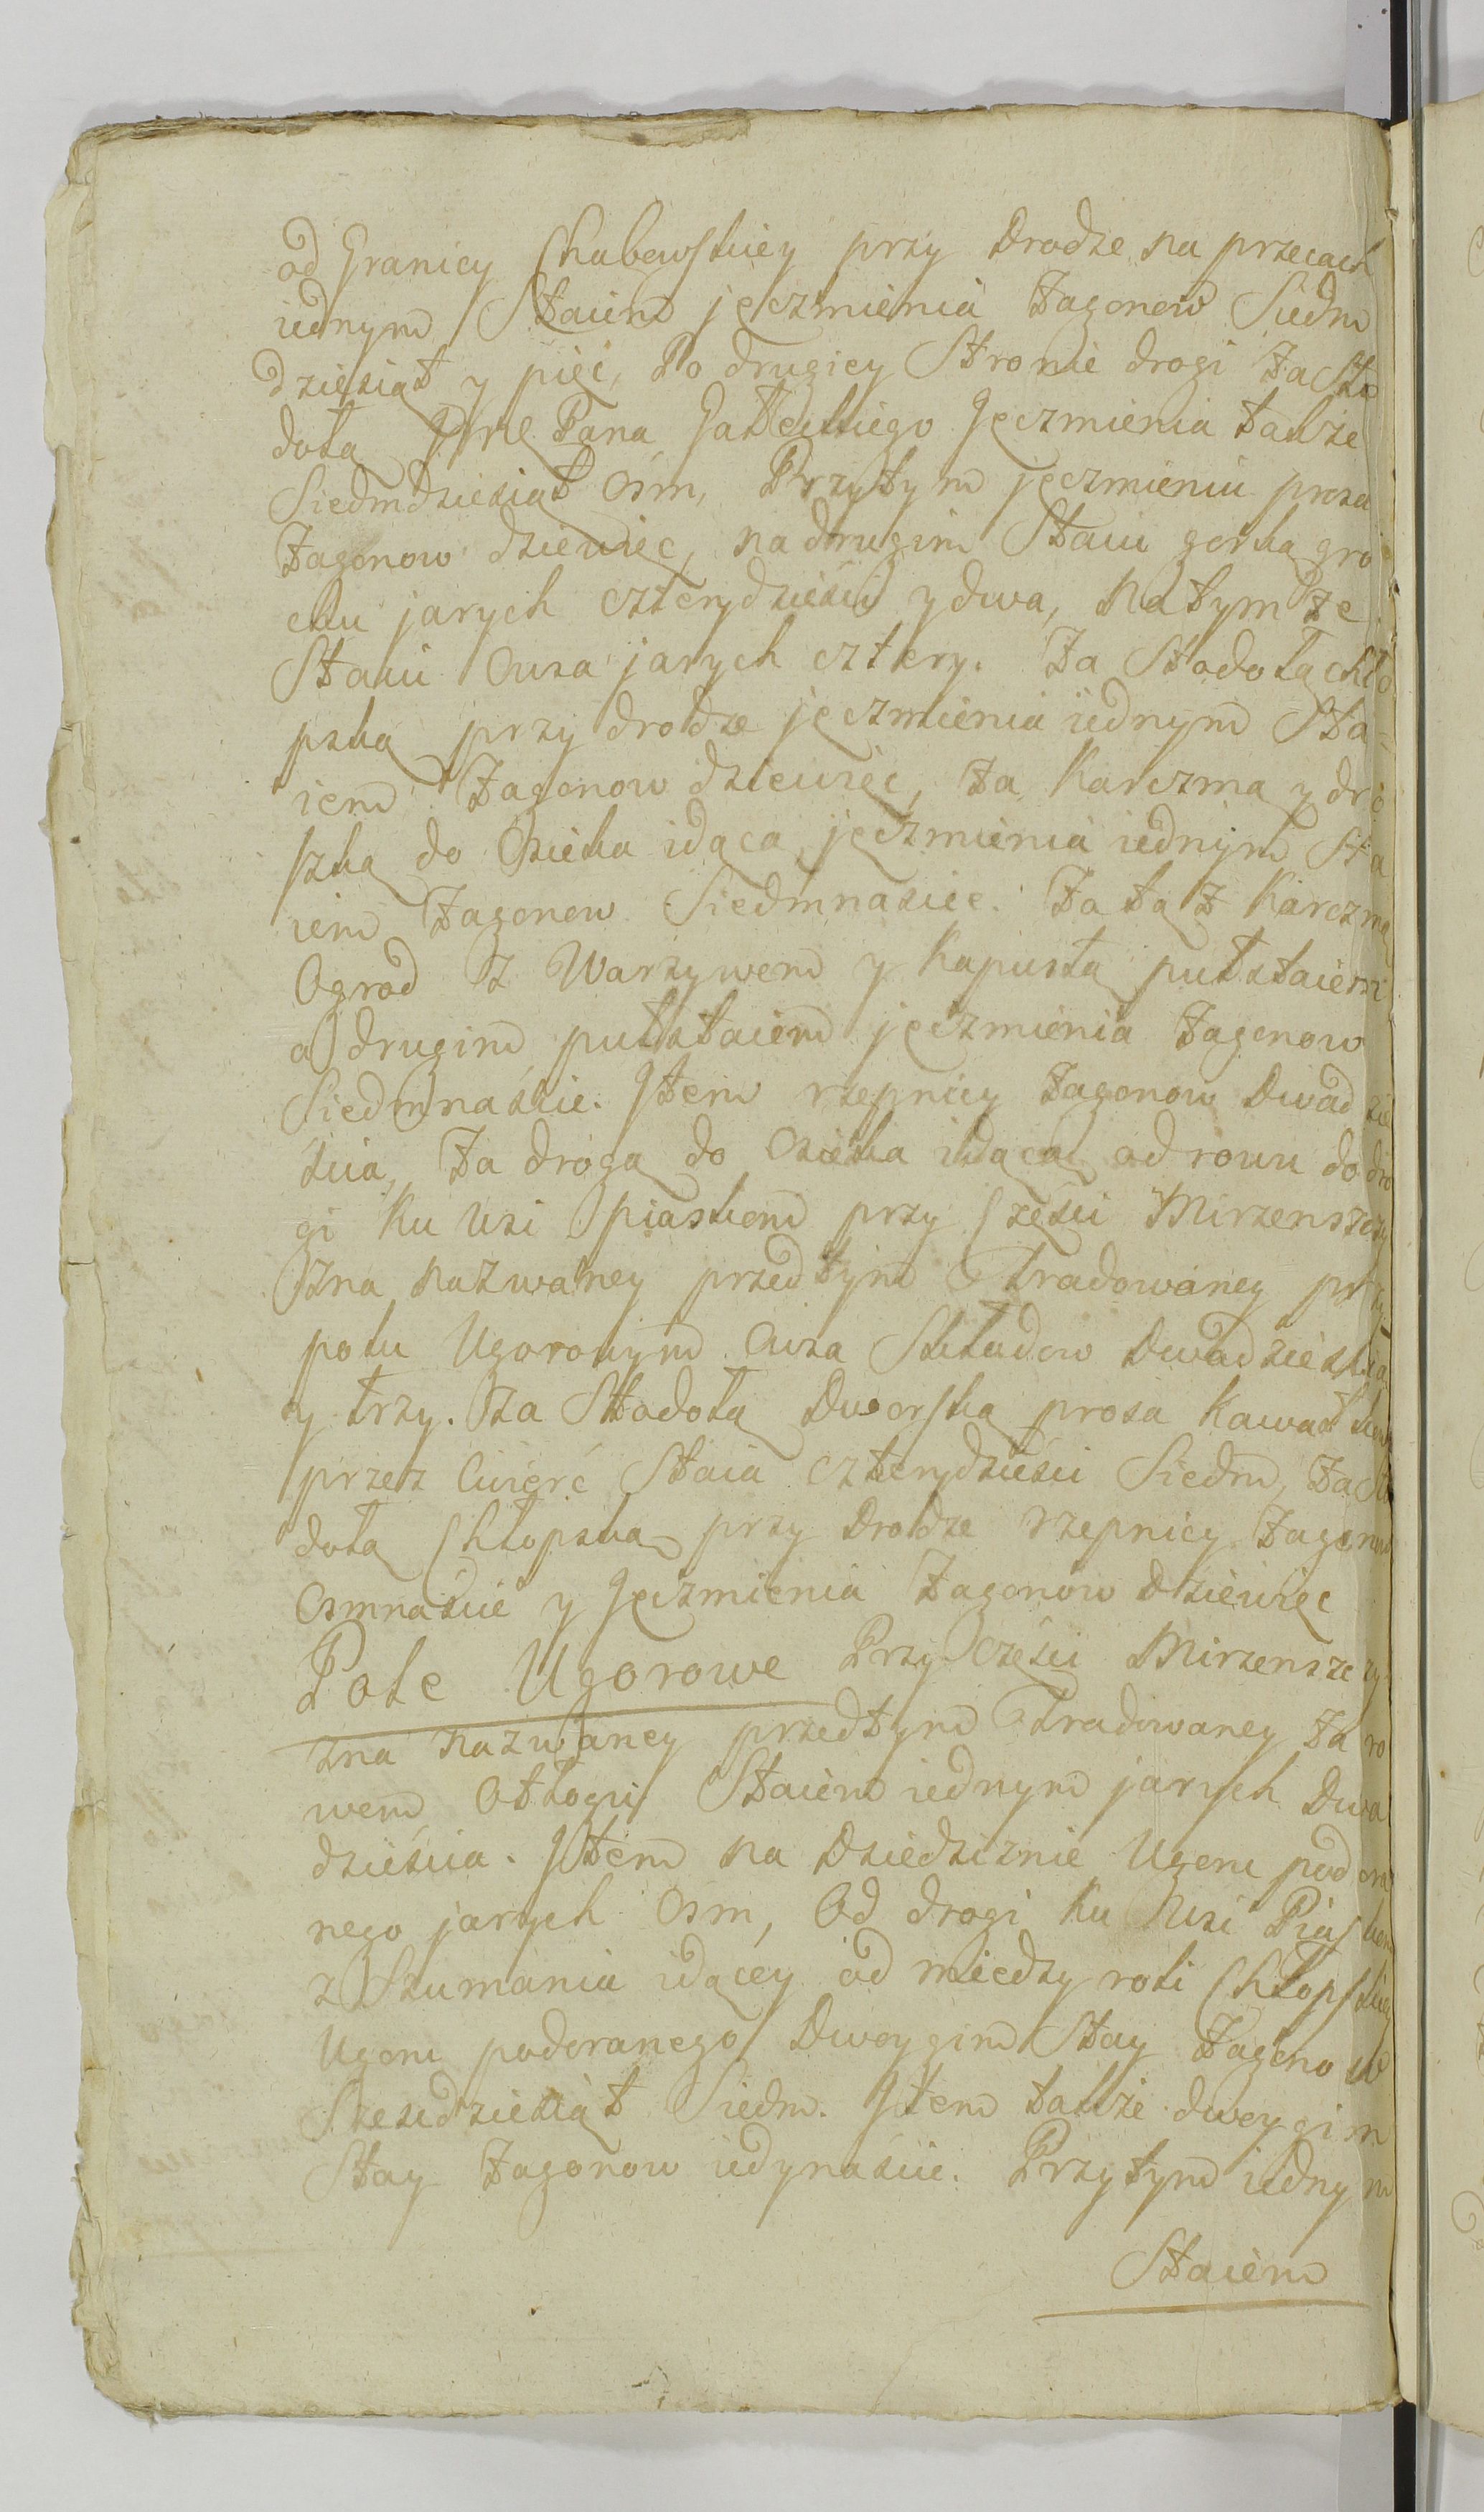 od Granicy Chabowskiey przy Drodze na przecach
iednym Staiem jęczmienia Zagonow Siedm
dziesiąt y pięć, Po drugiey Stronie drogi Za Sto
dołą Jmc Pana Gałeckiego Jęczmienia także
Siedmdziesiąt Osm, Przytym jęczmieniu prosa
Zagonow dziewięc, na drugim Staiu gorką gro
chu jarych czterydzieści y dwa, Na tym ze
Staiu Owsa jarych cztery. Za Stodołą chło
pską przy drodze jęczmienia iednym Sta-
iem Zagonow dziewięc, Za Karczmą y dro
szką do Osieka idącą jęczmienia iednym Sta
iem Zagonow Siedmnascie. Za tą Z Karczmą
Ogrod Z Warzywem y Kapustą pułstaiem
a drugim pułstaiem jęczmienia Zagonow
Siedmnaście. Item rzepnicy Zagonow Dwadzie
ścia, Za drogą do Osieka idącą od rowu do dro
gi Ku Wsi Piaskom przy Części Mirzenszczy
Zna nazwaney przedtym Tradowaney przy
polu Ugorowym Owsa Składow Dwadzieścia
y trzy. Za Stodołą Dworską prosa Kawałkow
przez Cwierć Staia czterydzieści Siedm, Za Sto
dołą Chłopską przy Drodze rzepnicy Zagonow
Osmnaście y Jęczmienia Zagonow Dziewięc
Pole Ugorowe Przy Części Mirzenszczy
zna nazwaney przedtym Tradowaney Za ro
wem Odłogu Staiem iednym jarych Dwa
dzieścia. Item na Dziedziznie Ugoru podora
nego jarych Osm, Od drogi Ku Wsi Piaskom
z Szumania idącey od miedzy roli Chłopskiey
Ugoru podoranego Dwoygim Stay Zagonow
Sześcdziesiąt Siedm. Item także dwoygim
Stay Zagonow iedynaście. Przytym iednym
Staiem